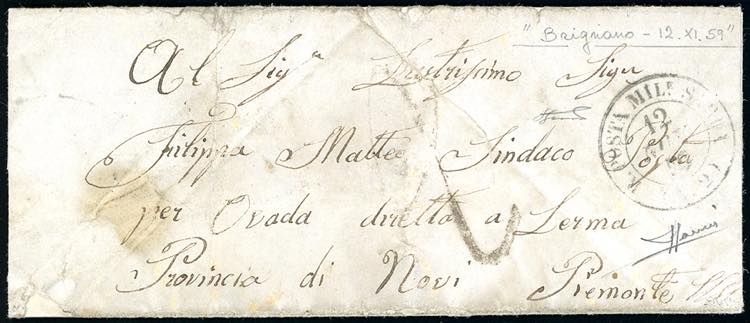 "Brignano - 12. XI. 59"
Al Sigʳ Lustrissimo Sigr
Filippa Matteo Sindaco Posta
per Ovada dretta a Lerma
Provincia di Novi Piemonte
POSTA MILᴱ SARDA
12